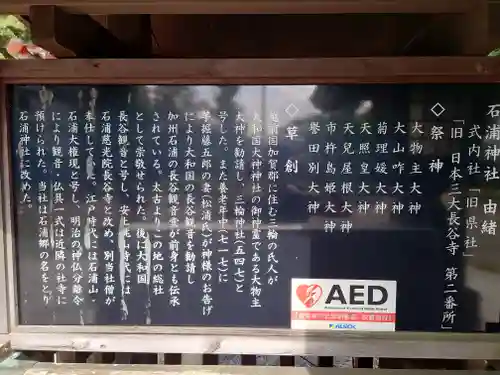 石浦神社 由緒
式内社 「旧 県社」
「旧 日本三大長谷寺 第二番所」
◇祭神
大物主大神
大山咋大神
菊理媛大神
天照皇大神
天児屋根大神
市杵島姫大神
誉田別大神
◇草創
加賀郡に住む三輪の氏人が
大和国大神神社の御神霊である大物主
大神を勧請し、三輪神社(五四七)と
号した。また養老年中(七一七)に
芋掘藤五郎の妻(松浦氏)が神様のお告げ
により大和国の長谷観音を勧請し
加州石浦の長谷観音堂が前身とも伝承
されている。太古よりこの地の総社
として崇敬せられた。後に大和国
長谷観音と号し、安土桃山時代には
石浦慈光院長谷寺と改め、別当社僧が
奉仕してした。江戸時代には石浦山・
石浦大権現と号し、明治の神仏分離令
により観音・仏具一式は近隣の社寺に
預けられた。今は石浦郷の名をとり
石浦神社に改めた。
AED
ALSOK